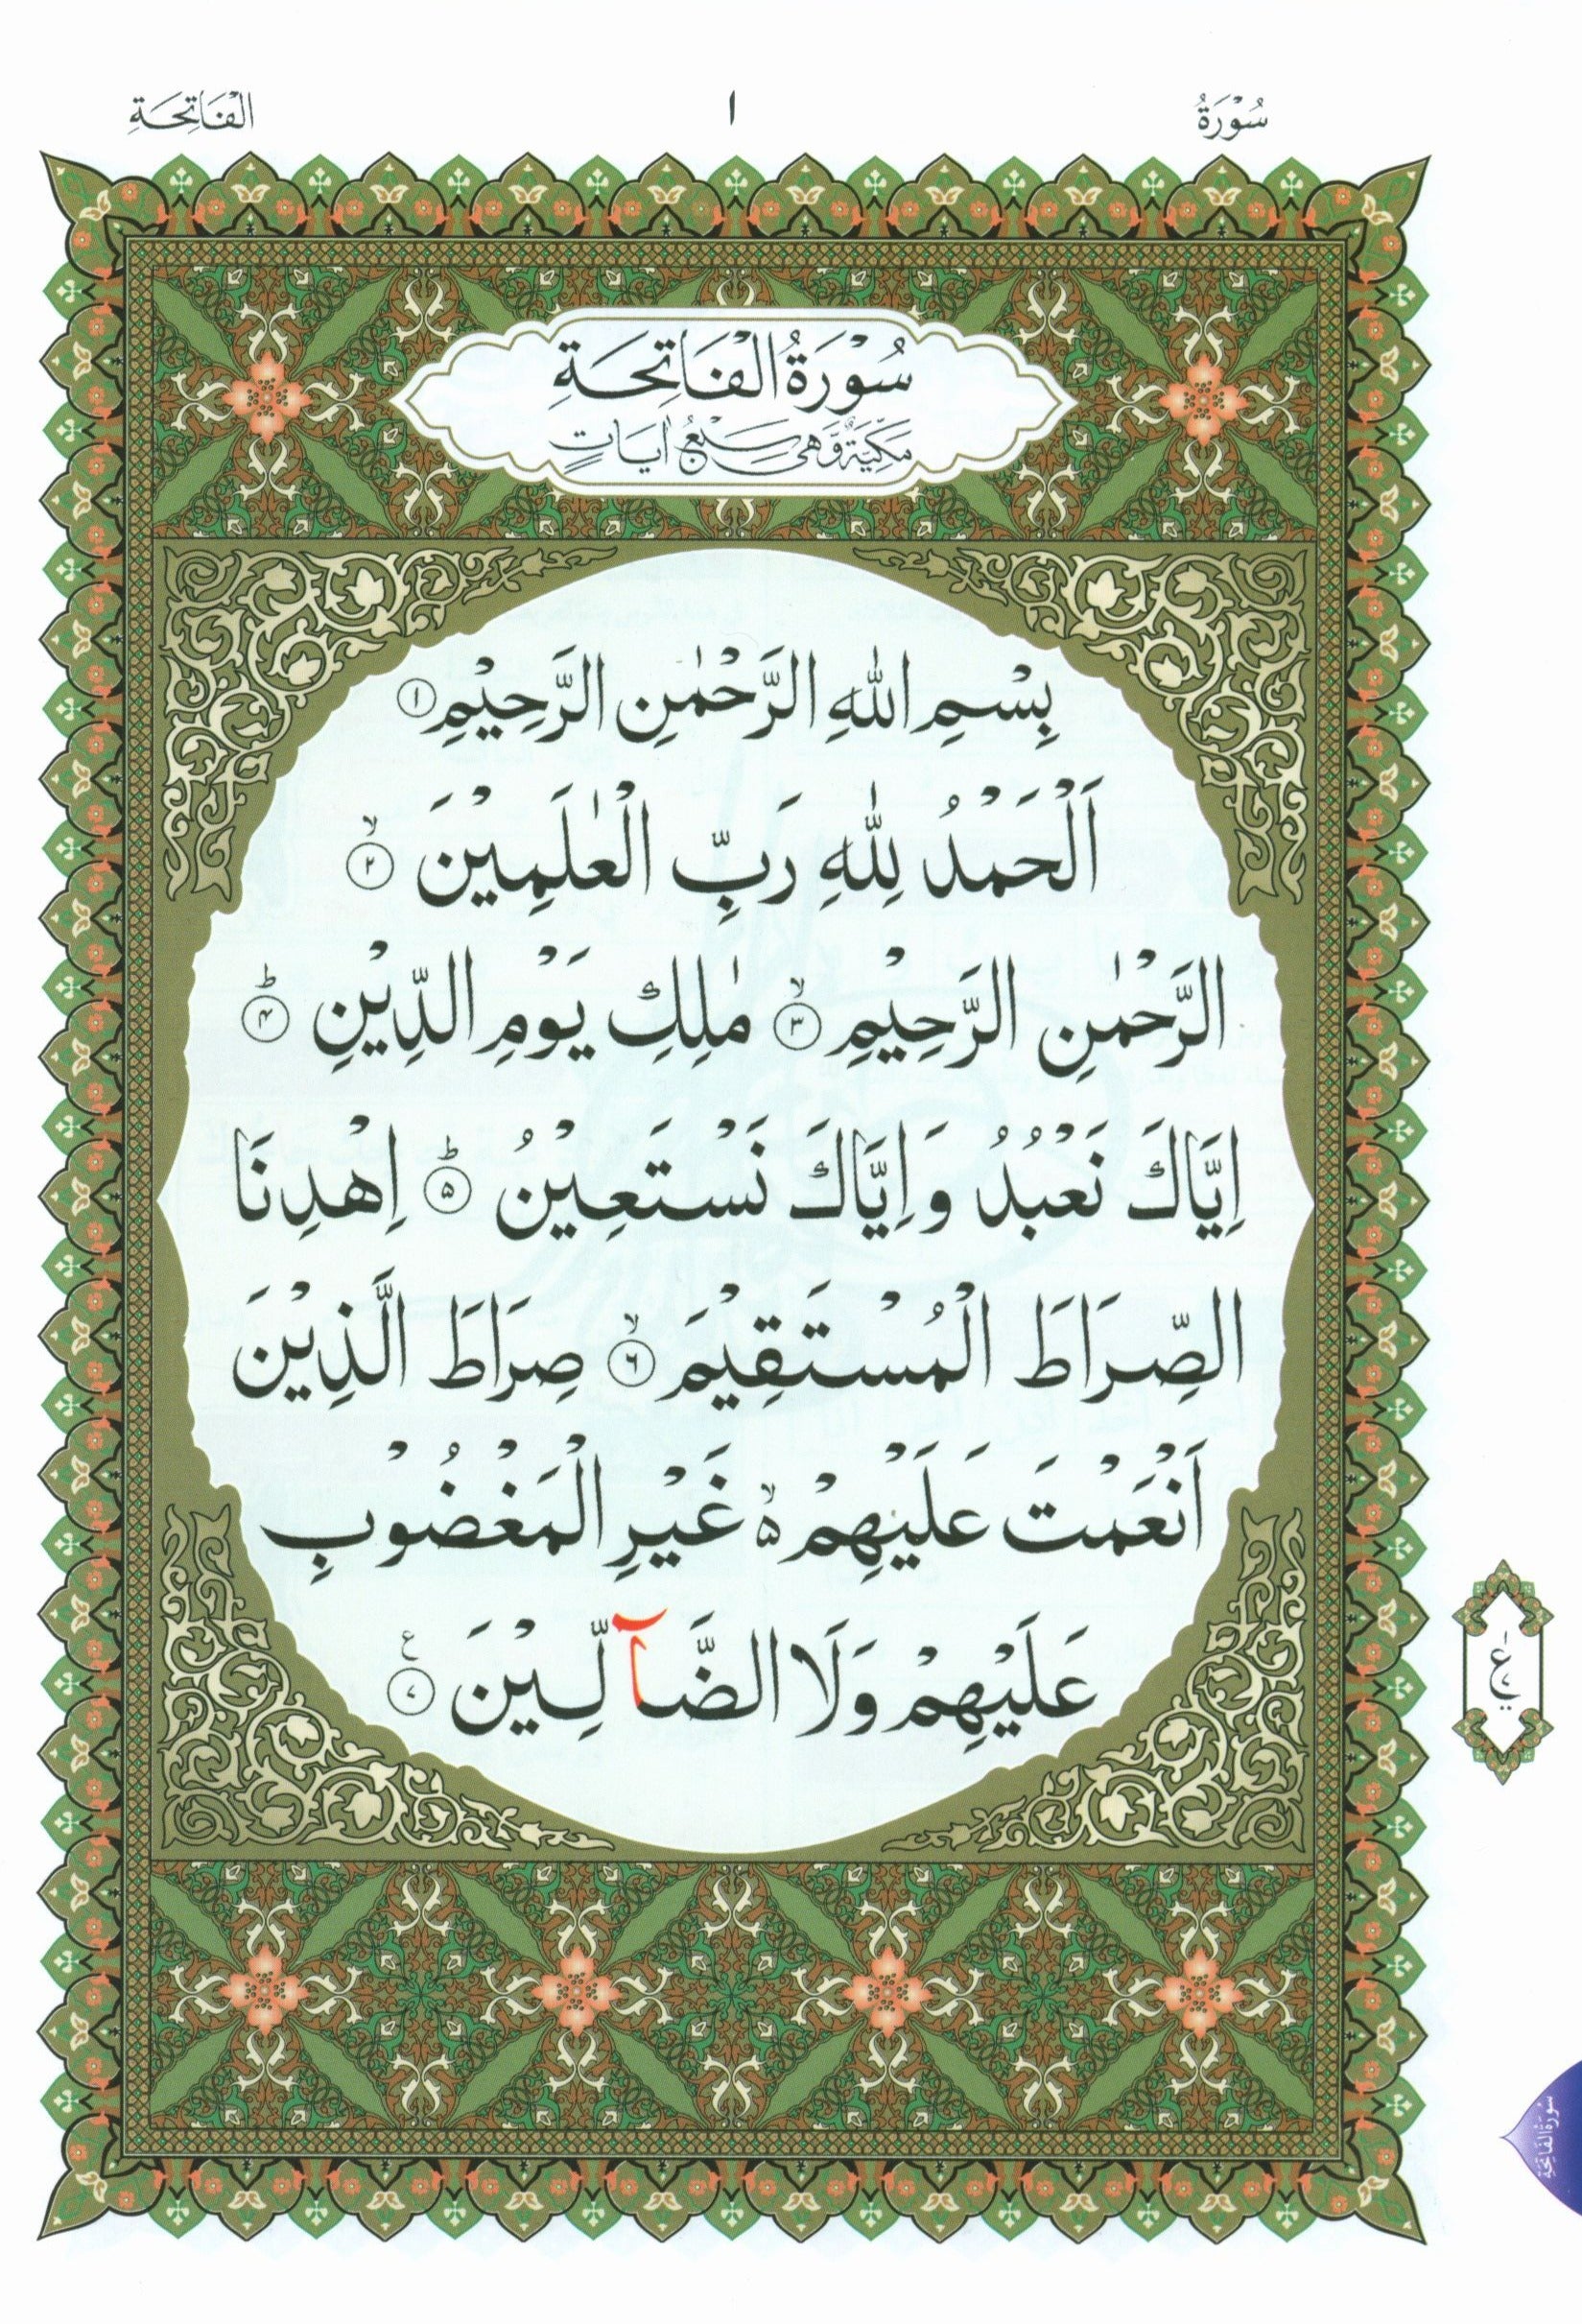 سُوْرَةُ
١
الْفَاتِحَةِ
سُوْرَةُ الْفَاتِحَةِ
مَكِّيَّةٌ وَّهِىَ سَبْعُ اٰيَاتٍ
بِسْمِ اللّٰهِ الرَّحْمٰنِ الرَّحِيْمِ ۝١
اَلْحَمْدُ لِلّٰهِ رَبِّ الْعٰلَمِيْنَ ۙ‏۝٢
الرَّحْمٰنِ الرَّحِيْمِ ۙ‏۝٣ مٰلِكِ يَوْمِ الدِّيْنِ ؕ‏۝۴
اِيَّاكَ نَعْبُدُ وَاِيَّاكَ نَسْتَعِيْنُ ؕ‏۝۵ اِهْدِنَا
الصِّرَاطَ الْمُسْتَقِيْمَ ۙ‏۝٦ صِرَاطَ الَّذِيْنَ
اَنْعَمْتَ عَلَيْهِمْ ۙ۵ غَيْرِ الْمَغْضُوْبِ
عَلَيْهِمْ وَلَا الضَّآلِّيْنَ ۝٧ ع
سُوْرَةُ الْفَاتِحَةِ